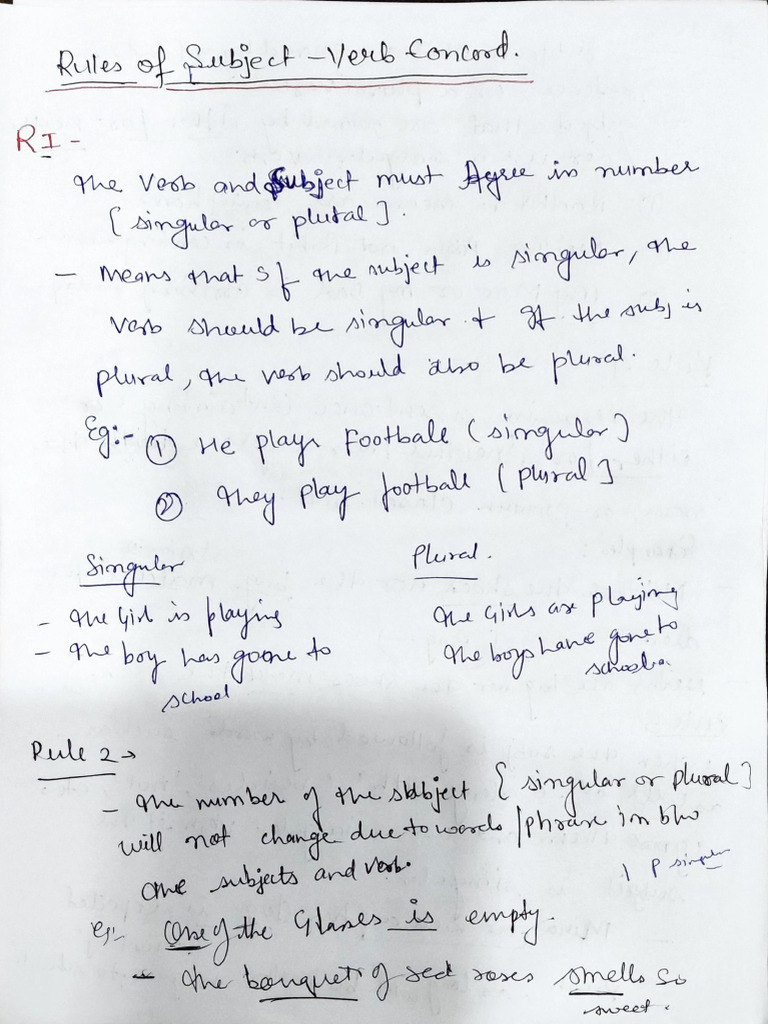 Rules of Subject - Verb Concord.
RI -
The Verb and Subject must Agree in number
[singular or plural].
- Means that If the subject is singular, the
verb should be singular + If the subj is
plural, the verb should also be plural.
Eg:- ① He plays Football (singular]
② They play football (plural]
Singular
Plural.
- The Girl is playing
The Girls are playing
- The boy has goone to
school
The boys have gone to
school
Rule 2 →
- The number of the subject [singular or plural]
will not change due to words/phrase in btw
the subjects and verb.
1 P singular
eg:- One of the Glases is empty.
- The banquet of red roses smells so
sweet.